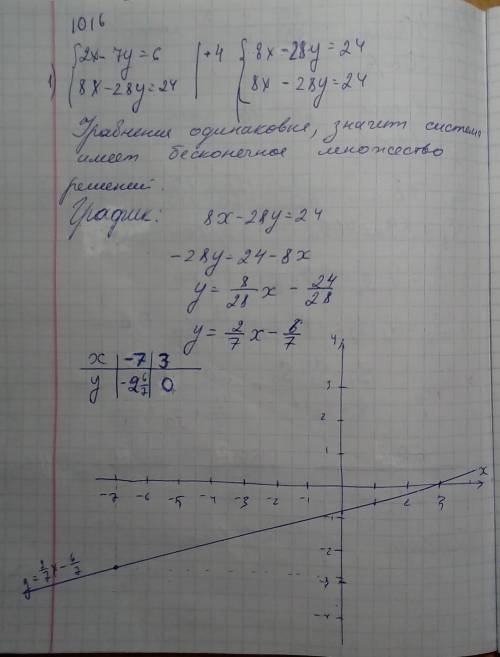 1016
1) {2x - 7y = 6 | ·4 {8x - 28y = 24
{8x - 28y = 24 {8x - 28y = 24
Уравнения одинаковые, значит система
имеет бесконечное множество
решений.
График: 8x - 28y = 24
-28y = 24 - 8x
y = 8/28 x - 24/28
y = 2/7 x - 6/7
x | -7 | 3
y | -2 6/7 | 0
y
3
2
1
x
-7 -6 -5 -4 -3 -2 -1 2 3
-1
-2
-3
-4
y = 2/7 x - 6/7